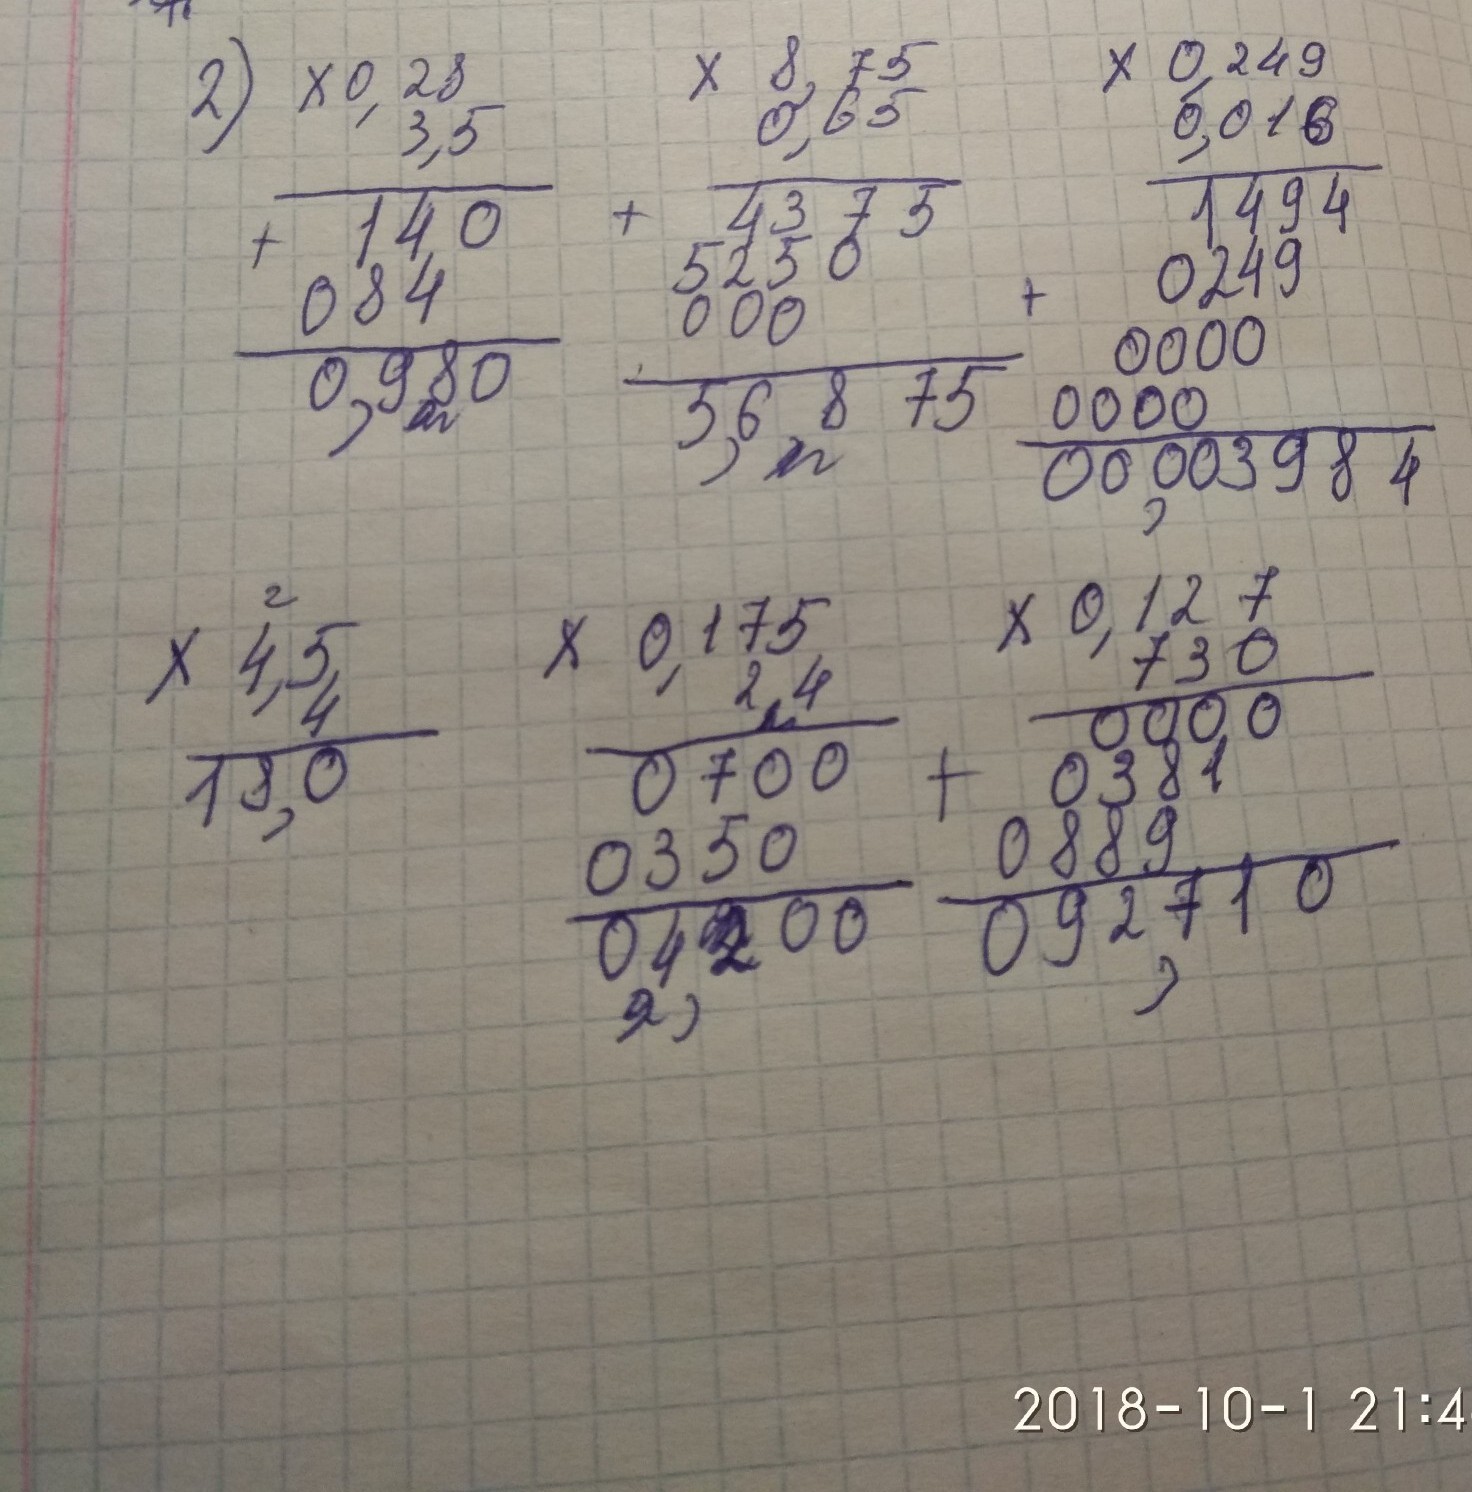 2) × 0,28
3,5
+ 140
084
0,980
× 8,75
0,65
+ 4375
5250
000
5,6875
× 0,249
0,016
1494
+ 0249
0000
0000
00,003984
2
× 4,5
4
18,0
× 0,175
2,4
0700
0350
04200
× 0,127
730
0000
+ 0381
0889
092,710
2018-10-1 21:4